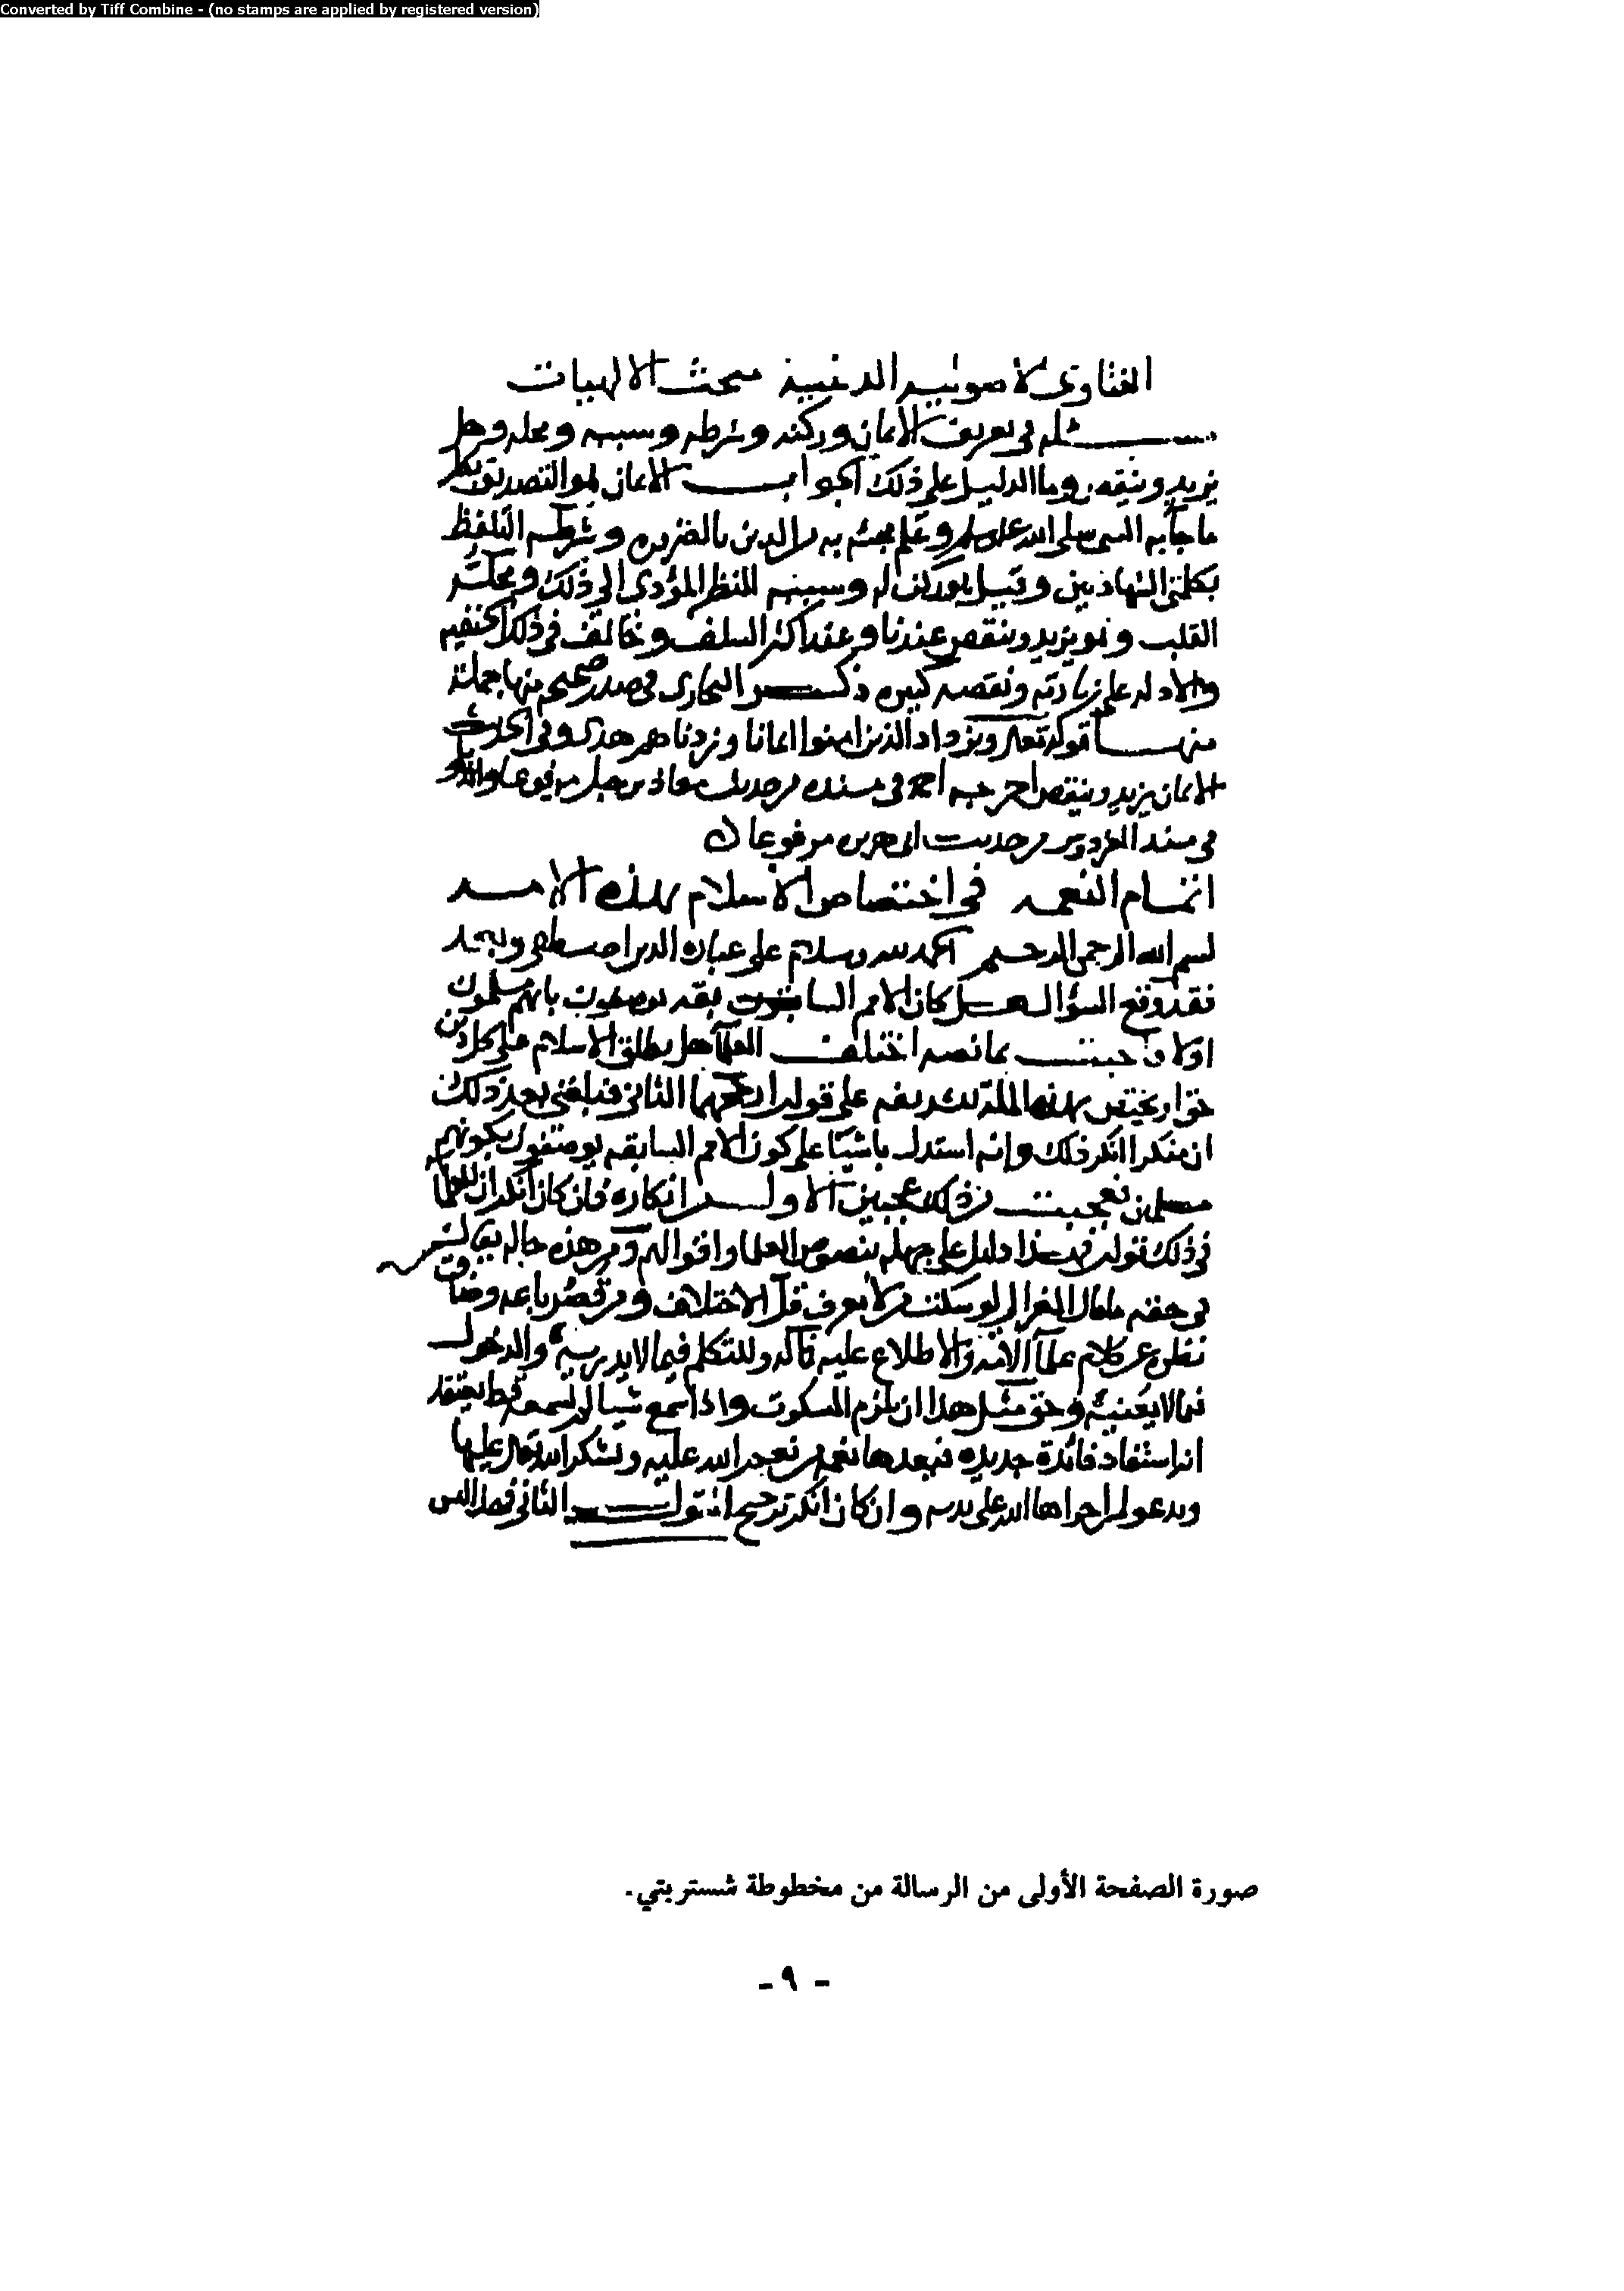 Converted by Tiff Combine - (no stamps are applied by registered version)
الفتاوى الاصوليه الدينية مبحث الالهيات
مسئلة في تعريف الايمان وركنه وشرطه وسببه ومحله وهل
يزيد وينقص وما الدليل على ذلك الجواب الايمان هو التصديق بكل
ما جآ به النبي صلى الله عليه وسلم وعلم مجيئه به من الدين بالضرورة وشرطه التلفظ
بكلمتي الشهادتين وقيل هو ركن له وسببه النظر المؤدي الى ذلك ومحله
القلب وهو يزيد وينقص عندنا وعند اكثر السلف وخالف في ذلك الحنفيه
والادله على زيادته ونقصه كثيره ذكر البخاري في صدر صحيحه منها جملة
منها قوله تعالى ويزداد الذين امنوا ايمانا وزدناهم هدى وفي الحديث
الايمان يزيد وينقص اخرجه احمد في مسنده من حديث معاذ بن جبل مرفوعا والديلمي
في مسند الفردوس من حديث ابي هريره مرفوعا
اتمام النعمه في اختصاص الاسلام بهذه الامه
بسم الله الرحمن الرحيم الحمد لله وسلام على عباده الذين اصطفى وبعد
فقد وقع السؤال هل كان الامم السابقون يوصفون بانهم مسلمون
اولا فاجبت بما نصه اختلف العلمآ هل يطلق الاسلام على كل دين
حق او يختص بهذه الملة الشريفه على قولين ارجحهما الثاني فبلغني بعد ذلك
ان منكرا انكر ذلك وانه استدل باشيآ على كون الامم السابقه يوصفون بكونهم
مسلمين فعجبت من ذلك عجبين الاول انكاره فان كان انكر ان للعلمآ
في ذلك قولين فهذا دليل على جهله بنصوص العلما واقوالهم ومن هذه حاله يقال
في حقه ما قال الغزالي لو سكت من لا يعرف قل الاختلاف ومن قصر باعه وضاق
نظره عن كلام علمآ الامه والاطلاع عليه فماله وللتكلم فيما لا يدريه والدخول
فيما لا يعنيه وحق مثل هذا ان يلزم السكوت واذا سمع شيا لم يسمعه قط يعتقد
انه استفاد فائدة جديده فيعدها نعمة من نعم الله عليه ويشكر الله تعالى عليها
ويدعو لمن اجراها الله على يديه وان كان انكر ترجيح القول الثاني فهذا ليس
صورة الصفحة الأولى من الرسالة من مخطوطة شستربتي.
- ٩ -